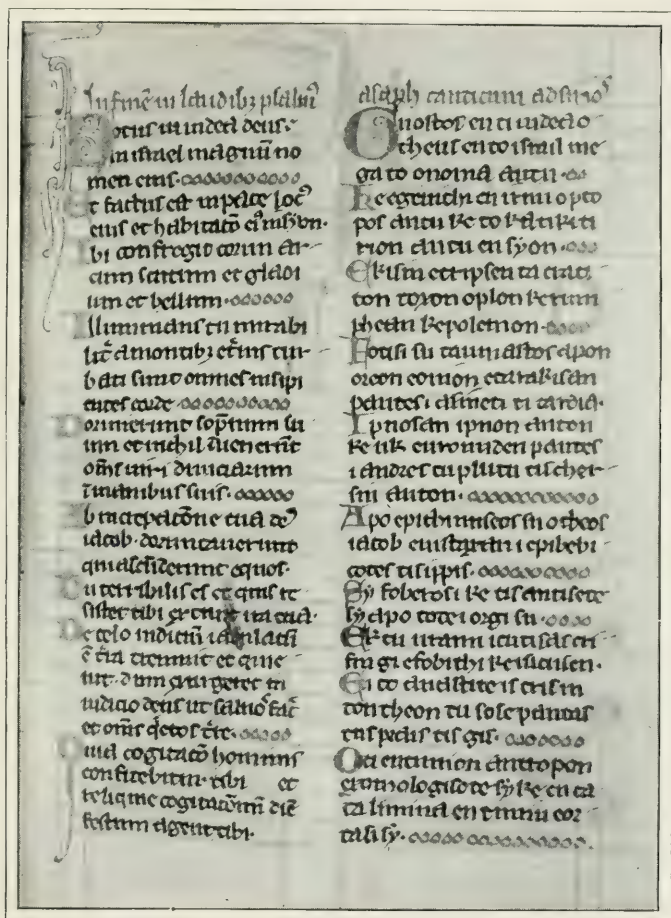 In finē in laudibꝫ psalmꝰ
Notus in iudea deus·
in israel magnū no
men eius·
Et factus est in pace locꝰ
eius et habitatō eiꝰ in syon·
Ibi confregit cornu ar
cum scutum et gladi
um et bellum·
Illuminans tu mirabi
lit̄ a montibꝫ et̄nis tur
bati sunt omnes insipi
entes corde·
Dormierunt sopnum su
um et nichil īuenerūt
om̄s uiri diuiciarum
ī manibus suis·
Ab increpatōne tua deꝰ
iacob· dormitauerunt
qui ascēderunt equos·
Tu terribilis es et quis re
sistet tibi ex tunc ira tua·
De celo iudiciū
t̄ra tremuit et quie
uit· Dum exurgeret in
iudicio deus ut saluos fac̄
et om̄s q̄etos t̄re·
Quia cogitatō hominis
confitebitur tibi et
reliquie cogitatōnū diē
festum agent tibi·
asaph canticum ad
Gnostos en ti iudea o
theus en to israil me
ga to onoma autu·
Ke egenithi en irini o pto
pos autu ke to katikiti
rion autu en syon·
Eki sin etripsen ta crati
ton toxon oplon ke rum
phean ke polemon·
Fotisi su taumastos apon
oreon eonion etarakisan
pantes i asineti ti cardia·
Ipnosan ipnon auton
ke uk euron uden pantes
i andres tu plutu tis cher
sin auton·
Apo epithimiseos su o theos
iacob enistaxan i epibebi
cotes tis ippis·
Sy foberos i ke tis antisete
sy apo tote i orgi su·
Ek tu uranu icutisas cri
sin gi efobithi ke isicasen·
En to anastite is crisin
ton theon tu sose pantas
tus pradis tis gis·
Oti entimion antropon
exomologisete sy ke en ca
ta limina en timiu eor
tasi sy·